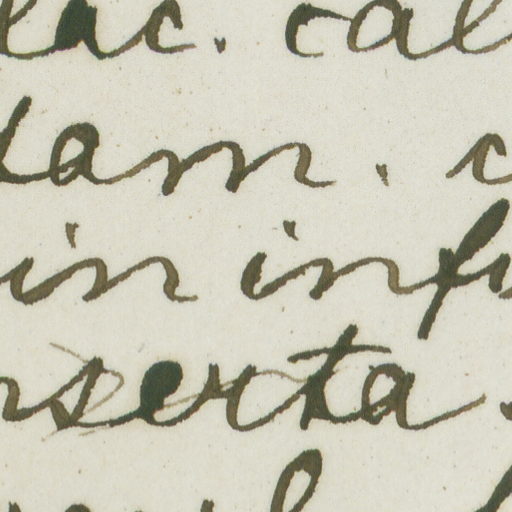 lac. cal
dam. c
in inf
nserta.